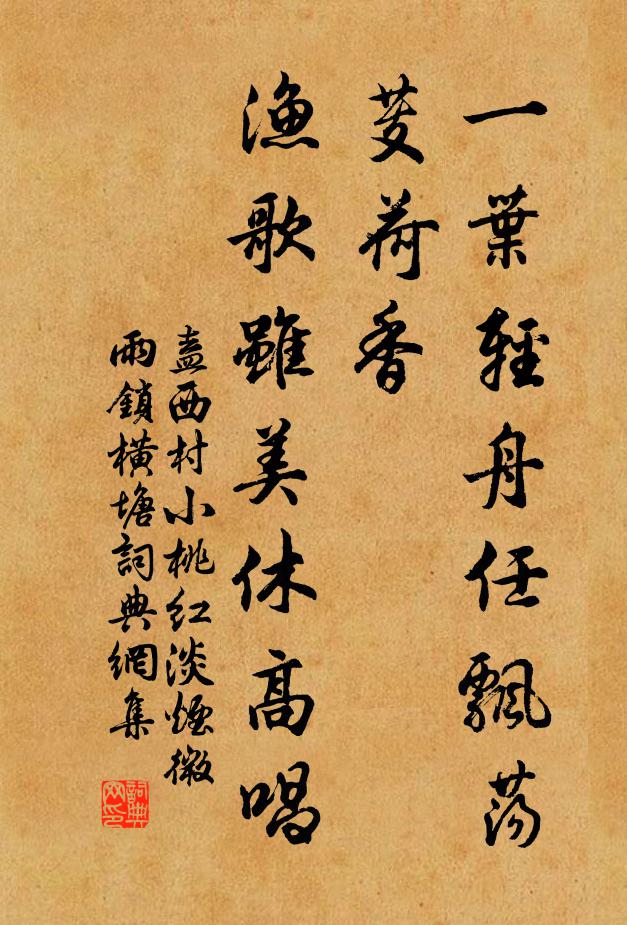 一葉輕舟任飄蕩
芰荷香
漁歌雖美休高唱
盍西村小桃紅淡煙微
雨鎖橫塘詞典網集
詞典
网印